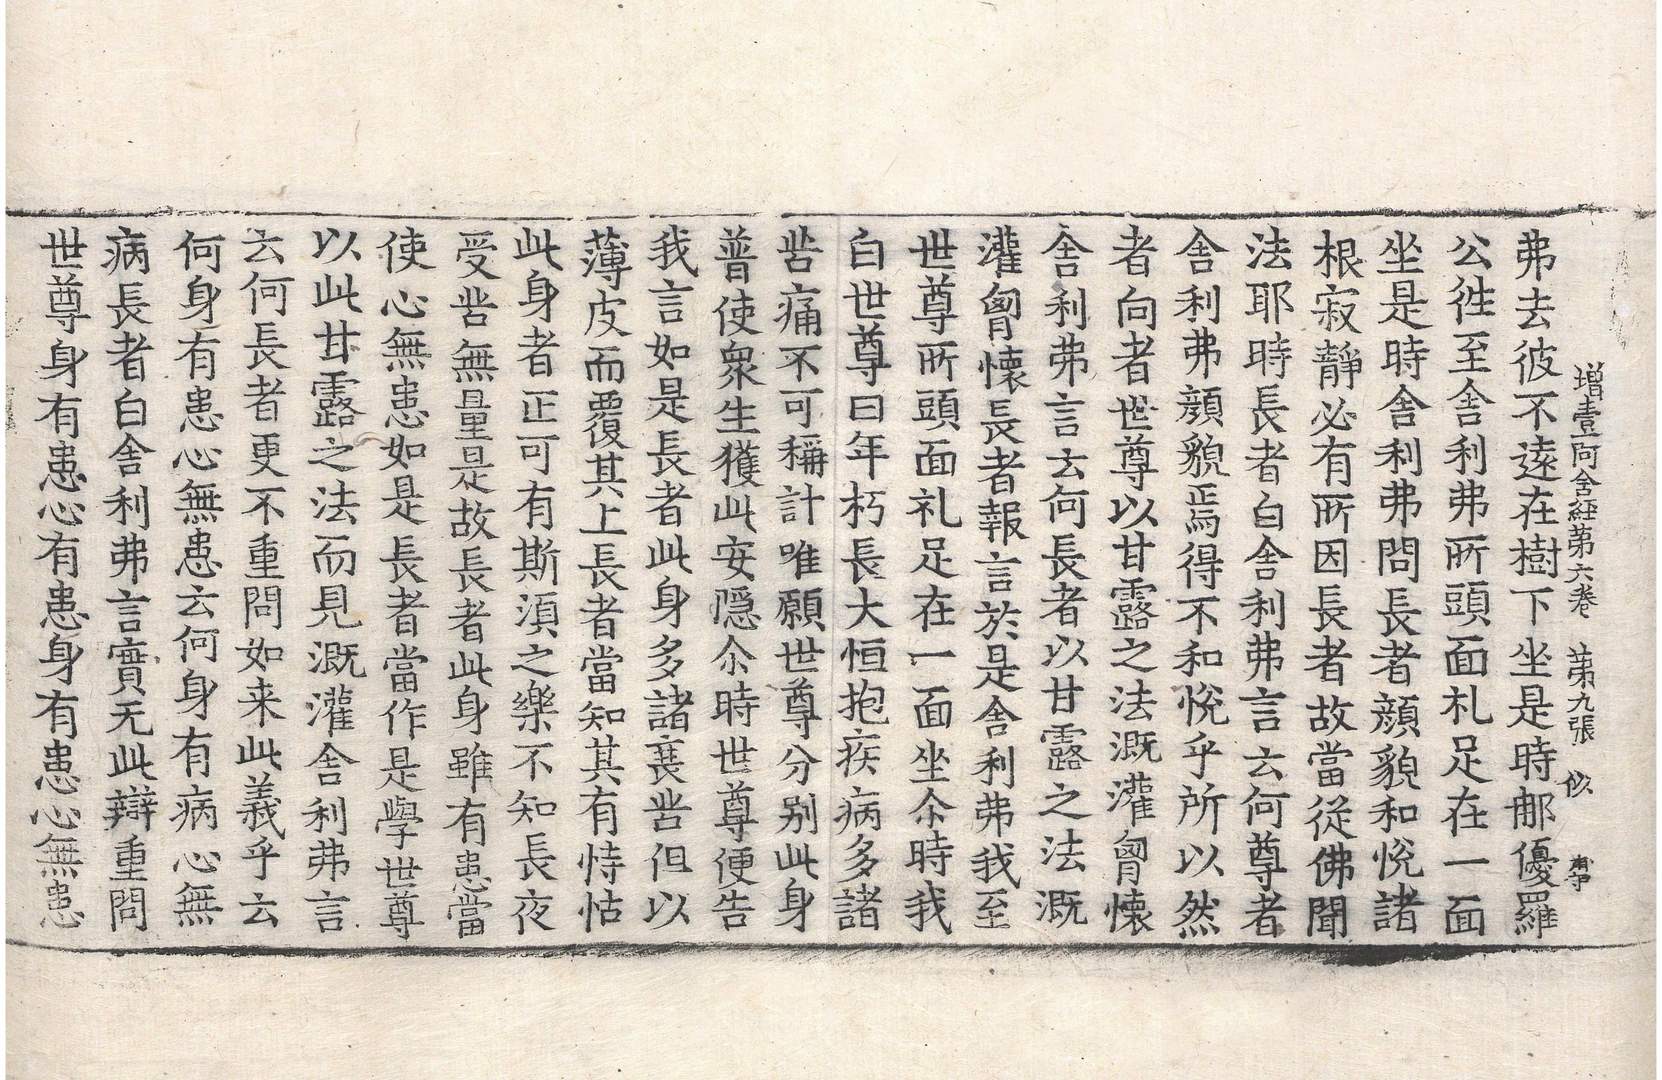 增壹阿含經第六卷 第九張 似
弗去彼不遠在樹下坐是時郍優羅
公徃至舍利弗所頭面礼足在一面
坐是時舍利弗問長者顔貌和悅諸
根寂靜必有所因長者故當從佛聞
法耶時長者白舍利弗言云何尊者
舍利弗顔貌焉得不和悅乎所以然
者向者世尊以甘露之法溉灌胷懷
舍利弗言云何長者以甘露之法溉
灌胷懷長者報言於是舍利弗我至
世尊所頭面礼足在一面坐尒時我
白世尊曰年朽長大恒抱疾病多諸
苦痛不可稱計唯願世尊分別此身
普使衆生獲此安隱尒時世尊便告
我言如是長者此身多諸衰苦但以
薄皮而覆其上長者當知其有恃怙
此身者正可有斯湏之樂不知長夜
受苦無量是故長者此身雖有患當
使心無患如是長者當作是學世尊
以此甘露之法而見溉灌舍利弗言
云何長者更不重問如来此義乎云
何身有患心無患云何身有病心無
病長者白舍利弗言實无此辯重問
世尊身有患心有患身有患心無患